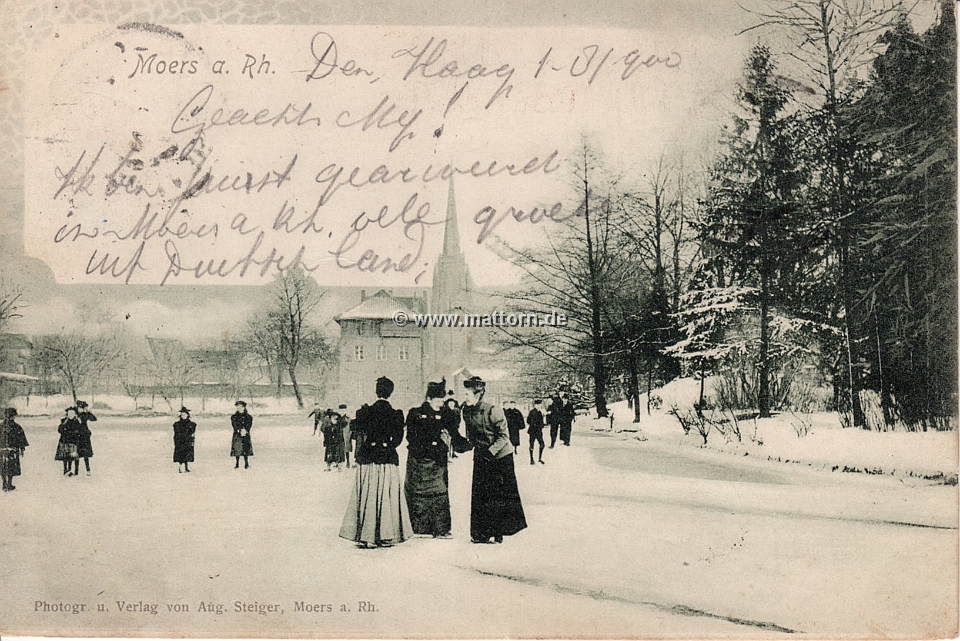 Moers a. Rh. Den, Haag 1-8/900
Geachte My!
Ik ben juist gearriveerd
in Moers a. Rh. vele groeten
uit Duitsch land,
© www.mattorn.de
Photogr. u. Verlag von Aug. Steiger, Moers a. Rh.